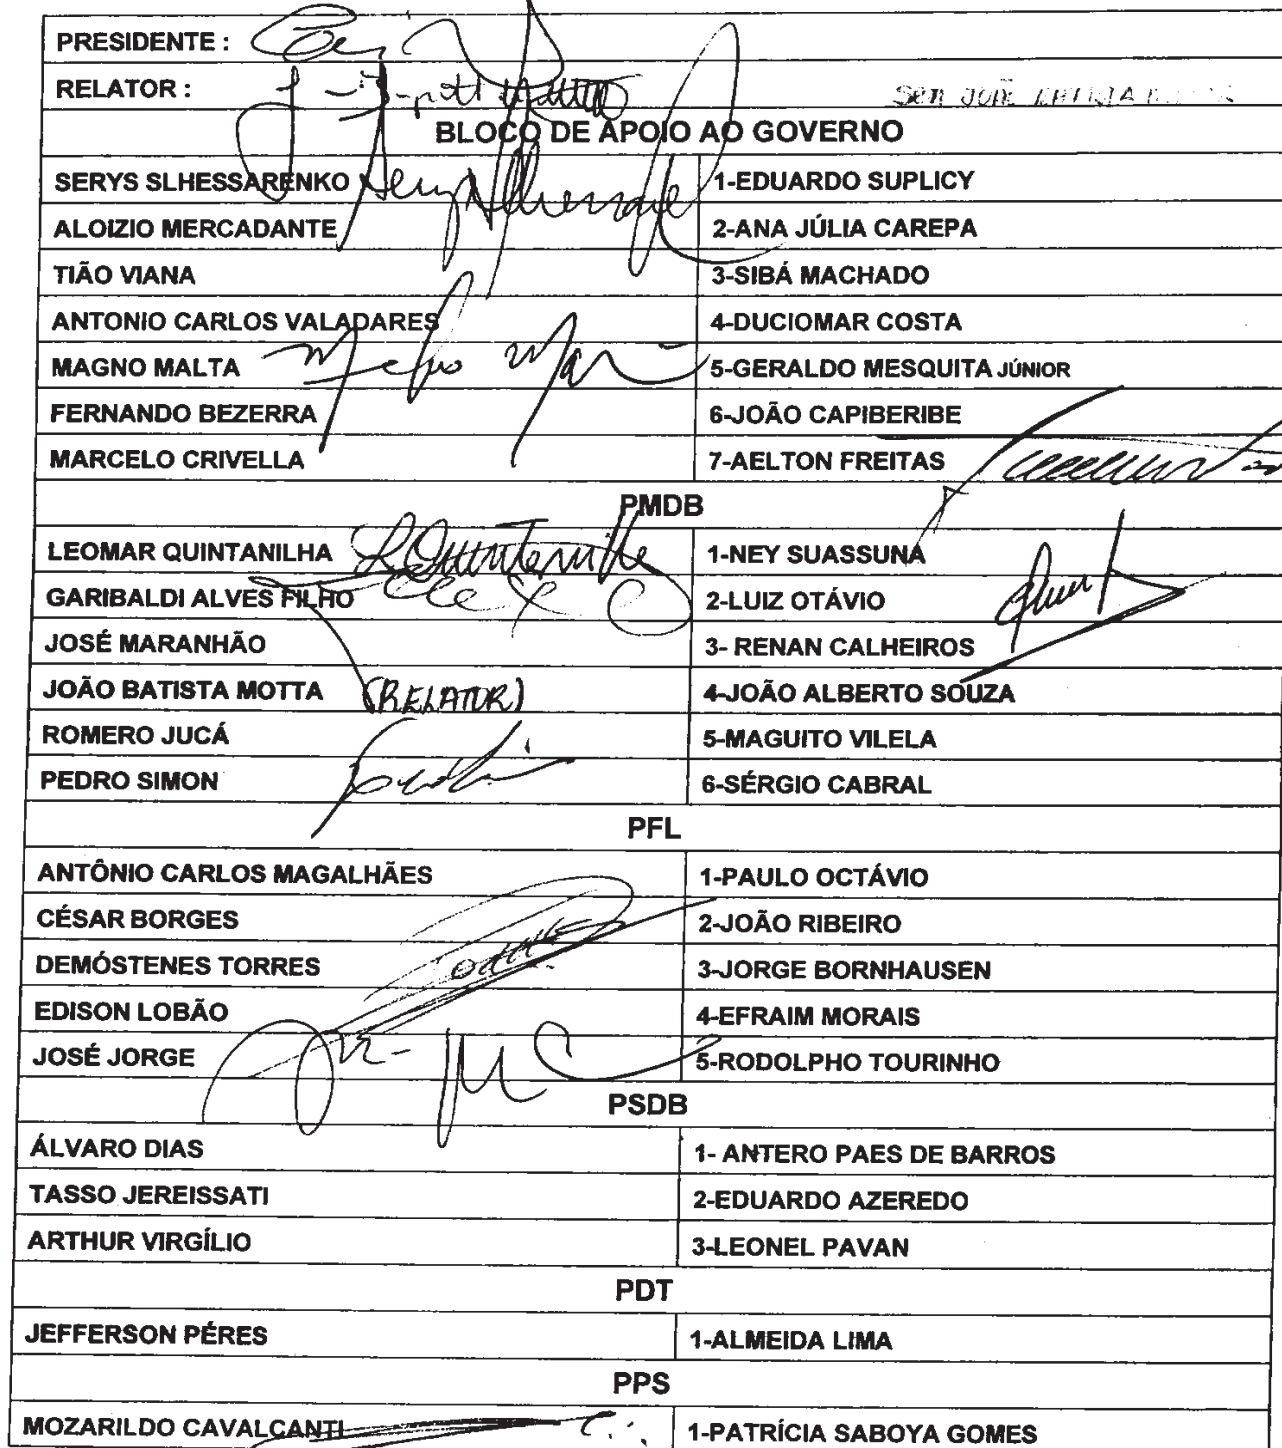 PRESIDENTE :
RELATOR :
BLOCO DE APOIO AO GOVERNO
SERYS SLHESSARENKO 1-EDUARDO SUPLICY
ALOIZIO MERCADANTE 2-ANA JÚLIA CAREPA
TIÃO VIANA 3-SIBÁ MACHADO
ANTONIO CARLOS VALADARES 4-DUCIOMAR COSTA
MAGNO MALTA 5-GERALDO MESQUITA JÚNIOR
FERNANDO BEZERRA 6-JOÃO CAPIBERIBE
MARCELO CRIVELLA 7-AELTON FREITAS
PMDB
LEOMAR QUINTANILHA 1-NEY SUASSUNA
GARIBALDI ALVES FILHO 2-LUIZ OTÁVIO
JOSÉ MARANHÃO 3- RENAN CALHEIROS
JOÃO BATISTA MOTTA (RELATOR) 4-JOÃO ALBERTO SOUZA
ROMERO JUCÁ 5-MAGUITO VILELA
PEDRO SIMON 6-SÉRGIO CABRAL
PFL
ANTÔNIO CARLOS MAGALHÃES 1-PAULO OCTÁVIO
CÉSAR BORGES 2-JOÃO RIBEIRO
DEMÓSTENES TORRES 3-JORGE BORNHAUSEN
EDISON LOBÃO 4-EFRAIM MORAIS
JOSÉ JORGE 5-RODOLPHO TOURINHO
PSDB
ÁLVARO DIAS 1- ANTERO PAES DE BARROS
TASSO JEREISSATI 2-EDUARDO AZEREDO
ARTHUR VIRGÍLIO 3-LEONEL PAVAN
PDT
JEFFERSON PÉRES 1-ALMEIDA LIMA
PPS
MOZARILDO CAVALCANTI 1-PATRÍCIA SABOYA GOMES